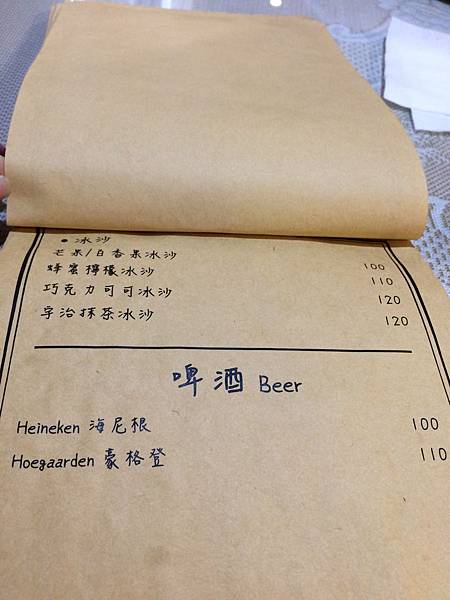 • 冰沙
芒果/百香果冰沙 100
蜂蜜檸檬冰沙 110
巧克力可可冰沙 120
宇治抹茶冰沙 120
啤酒 Beer
Heineken 海尼根 100
Hoegaarden 豪格登 110